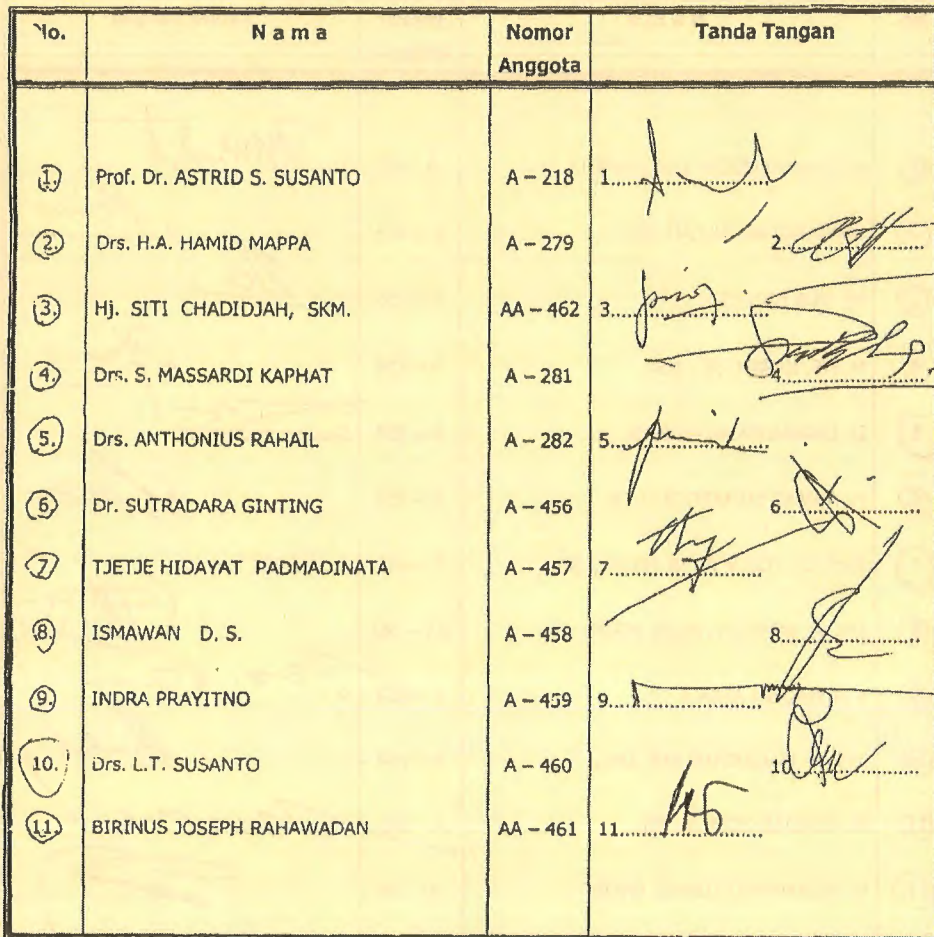 No. N a m a Nomor Anggota Tanda Tangan
1. Prof. Dr. ASTRID S. SUSANTO A – 218 1.
2. Drs. H.A. HAMID MAPPA A – 279 2.
3. Hj. SITI CHADIDJAH, SKM. AA – 462 3.
4. Drs. S. MASSARDI KAPHAT A – 281 4.
5. Drs. ANTHONIUS RAHAIL A – 282 5.
6. Dr. SUTRADARA GINTING A – 456 6.
7. TJETJE HIDAYAT PADMADINATA A – 457 7.
8. ISMAWAN D. S. A – 458 8.
9. INDRA PRAYITNO A – 459 9.
10. Drs. L.T. SUSANTO A – 460 10.
11. BIRINUS JOSEPH RAHAWADAN AA – 461 11.